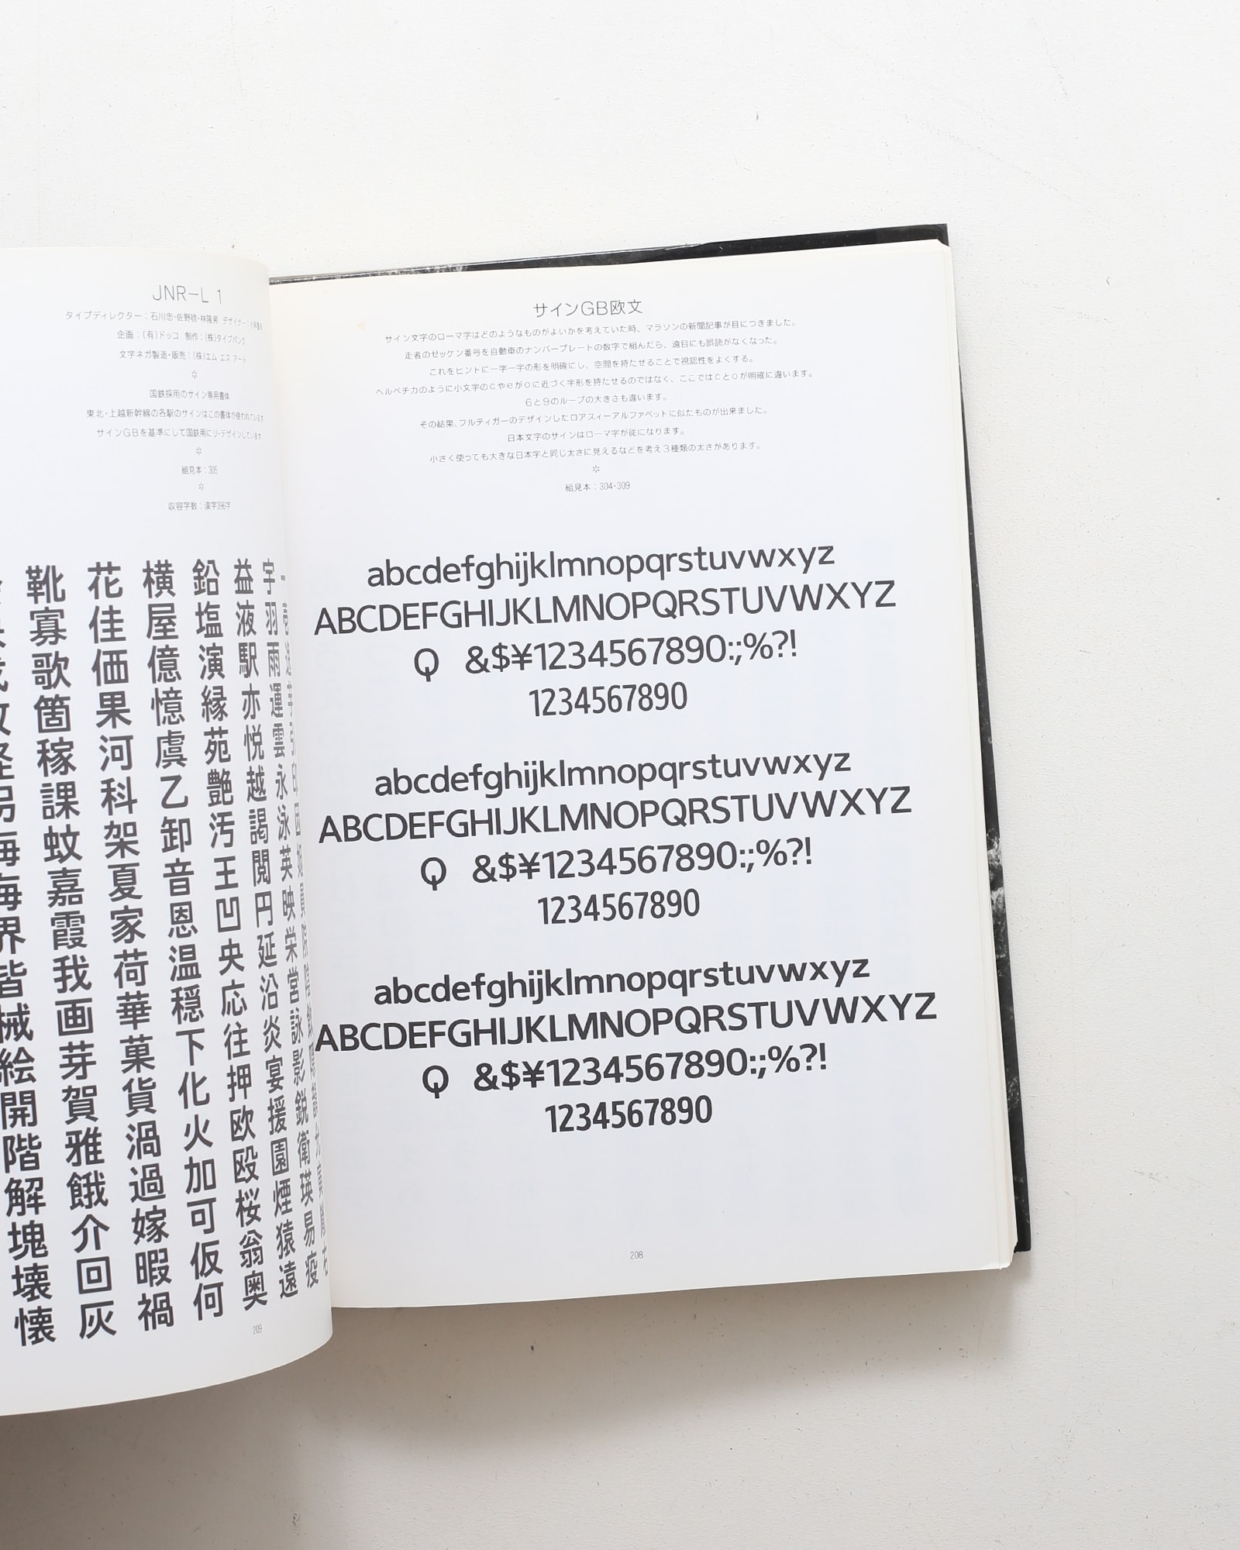 サインGB欧文
サイン文字のローマ字はどのようなものがよいかを考えていた時、マラソンの新聞記事が目につきました。
走者のゼッケン番号を自動車のナンバープレートの数字で組んだら、遠目にも誤読がなくなった。
これをヒントに一字一字の形を明確にし、空間を持たせることで視認性をよくする。
ヘルベチカのように小文字のcやeがoに近づく字形を持たせるのではなく、ここではcとoが明確に違います。
6と9のループの大きさも違います。
その結果、フルティガーのデザインしたロアスィーアルファベットに似たものが出来ました。
日本文字のサインはローマ字が従になります。
小さく使っても大きな日本字と同じ太さに見えるなどを考え3種類の太さがあります。
✡
組見本：304・309
abcdefghijklmnopqrstuvwxyz
ABCDEFGHIJKLMNOPQRSTUVWXYZ
Q &$¥1234567890:;%?!
1234567890
abcdefghijklmnopqrstuvwxyz
ABCDEFGHIJKLMNOPQRSTUVWXYZ
Q &$¥1234567890:;%?!
1234567890
abcdefghijklmnopqrstuvwxyz
ABCDEFGHIJKLMNOPQRSTUVWXYZ
Q &$¥1234567890:;%?!
1234567890
208
JNR-L 1
タイプディレクター：石川忠・佐野稔・林隆男 デザイナー：
企画：(有)ドッコ 制作：(株)タイプバンク
文字ネガ製造・販売：(株)エム エス アート
✡
国鉄採用のサイン専用書体
東北・上越新幹線の各駅のサインはこの書体が使われています
サインGBを基準にして国鉄用にリ・デザインしています
✡
組見本：305
✡
収容字数：漢字
宇羽雨運雲永泳英映栄営詠影鋭衛瑛易疫
益液駅亦悦越謁閲円延沿炎宴援園煙猿遠
鉛塩演縁苑艶汚王凹央応往押欧殴桜翁奥
横屋億憶虞乙卸音恩温穏下化火加可仮何
花佳価果河科架夏家荷華菓貨渦過嫁暇禍
靴寡歌箇稼課蚊嘉霞我画芽賀雅餓介回灰
界皆械絵開階解塊壊懐
209